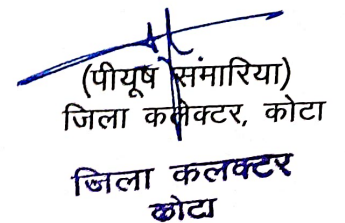 (पीयूष संमारिया)
जिला कलेक्टर, कोटा
जिला कलक्टर
कोटा